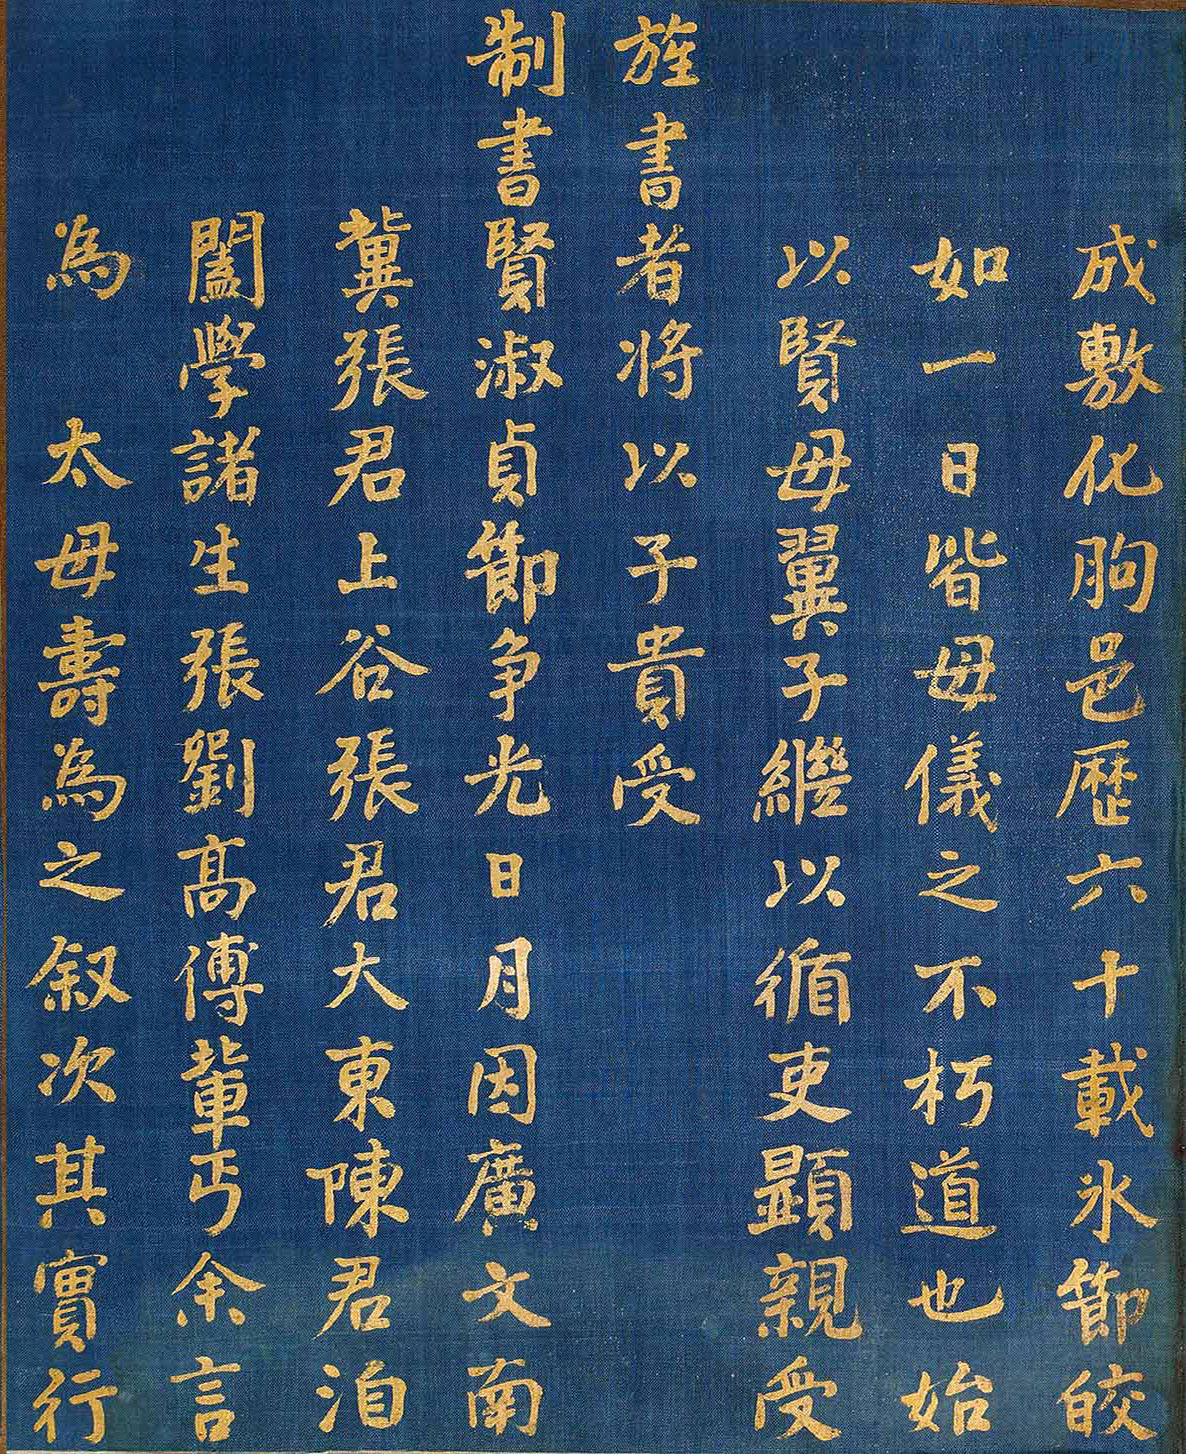 成敷化朐邑歷六十載氷節皎
如一日皆母儀之不朽道也始
以賢母翼子繼以循吏顯親受
旌書者将以子貴受
制書賢淑貞節争光日月因廣文南
冀張君上谷張君大東陳君洎
闔學諸生張劉髙傅軰丐余言
為 太母壽為之叙次其實行